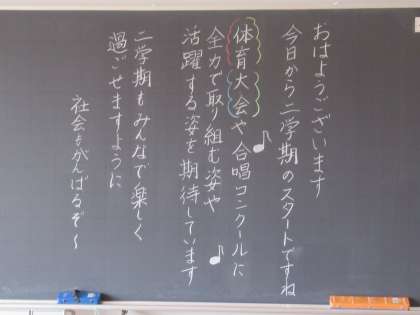 おはようございます
今日から二学期のスタートですね
体育大会や合唱コンクールに
全力で取り組む姿や
活躍する姿を期待しています
二学期もみんなで楽しく
過ごせますように
社会もがんばるぞ〜